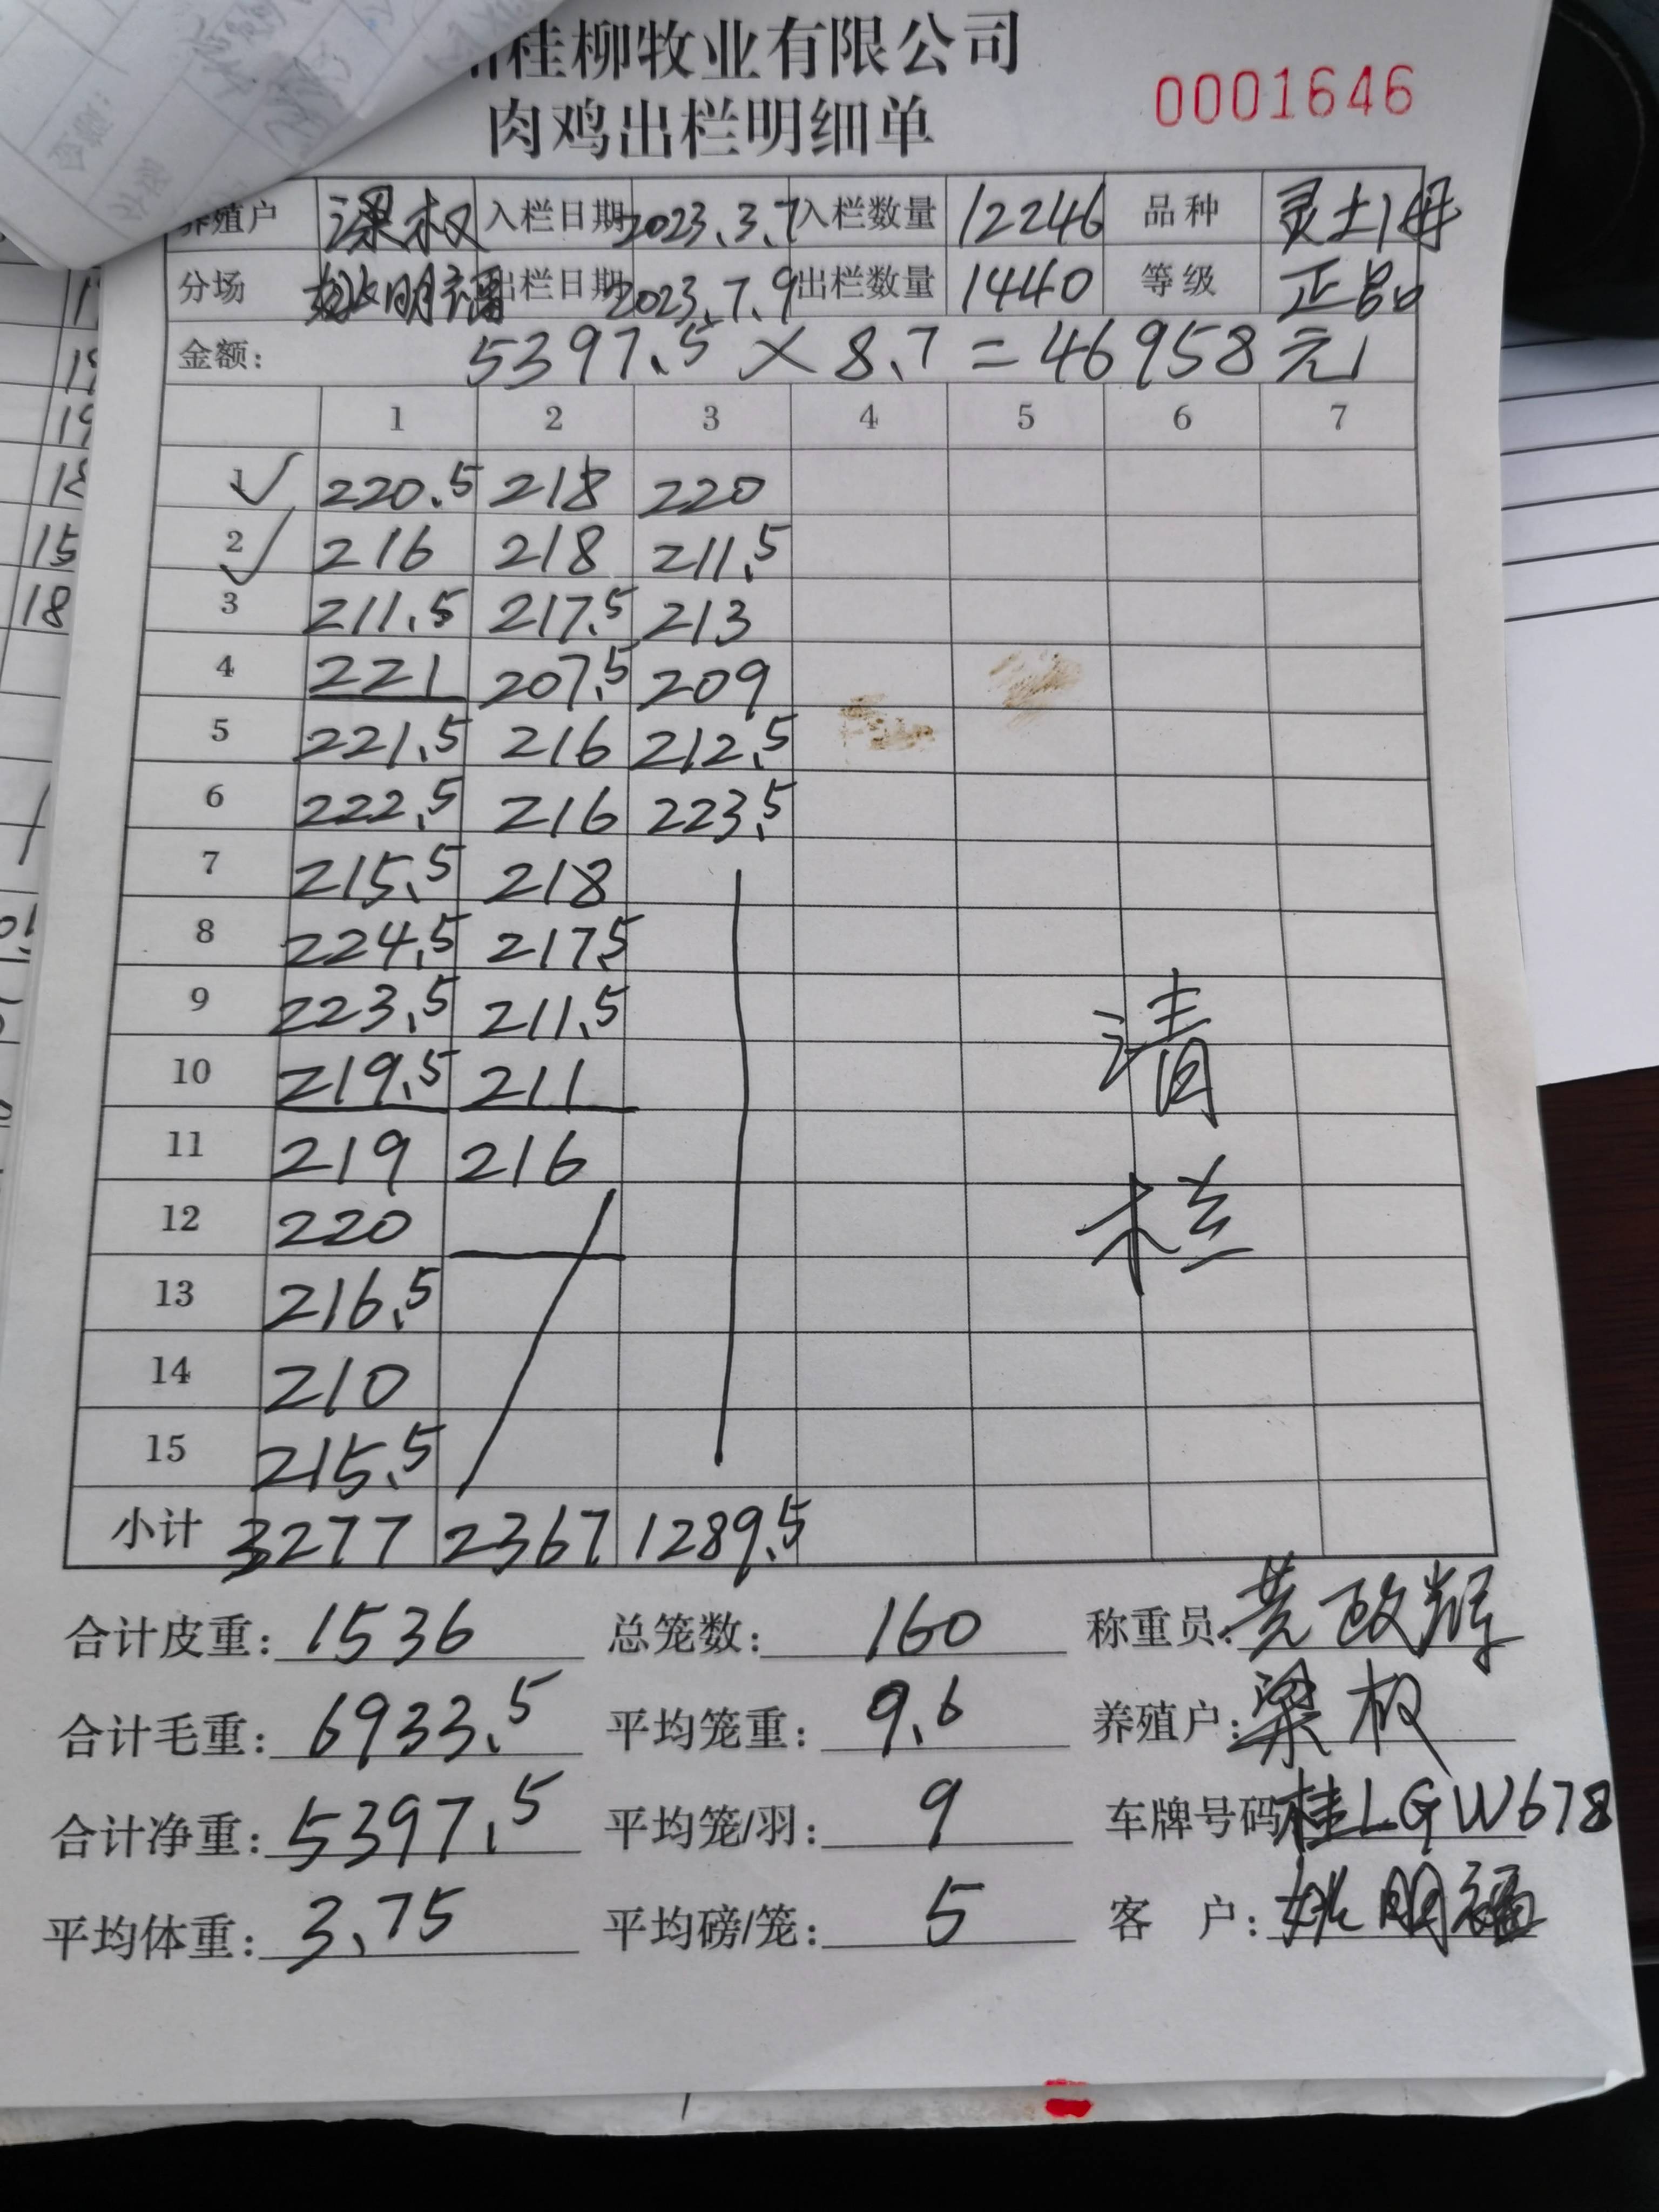 桂柳牧业有限公司
肉鸡出栏明细单
0001646
养殖户 梁权 入栏日期 2023.3.7 入栏数量 12246 品种 灵土1母
分场 姚明福 出栏日期 2023.7.9 出栏数量 1440 等级 正品
金额: 5397.5 × 8.7 = 46958元
1 2 3 4 5 6 7
1 220.5 218 220
2 216 218 211.5
3 211.5 217.5 213
4 221 207.5 209
5 221.5 216 212.5
6 222.5 216 223.5
7 215.5 218
8 224.5 217.5
9 223.5 211.5
10 219.5 211
11 219 216
12 220
13 216.5
14 210
15 215.5
清
小计 3277 2367 1289.5
合计皮重: 1536 总笼数: 160 称重员: 黄政辉
合计毛重: 6933.5 平均笼重: 9.6 养殖户: 梁权
合计净重: 5397.5 平均笼/羽: 9 车牌号码 桂LGW678
平均体重: 3.75 平均磅/笼: 5 客 户: 姚明福